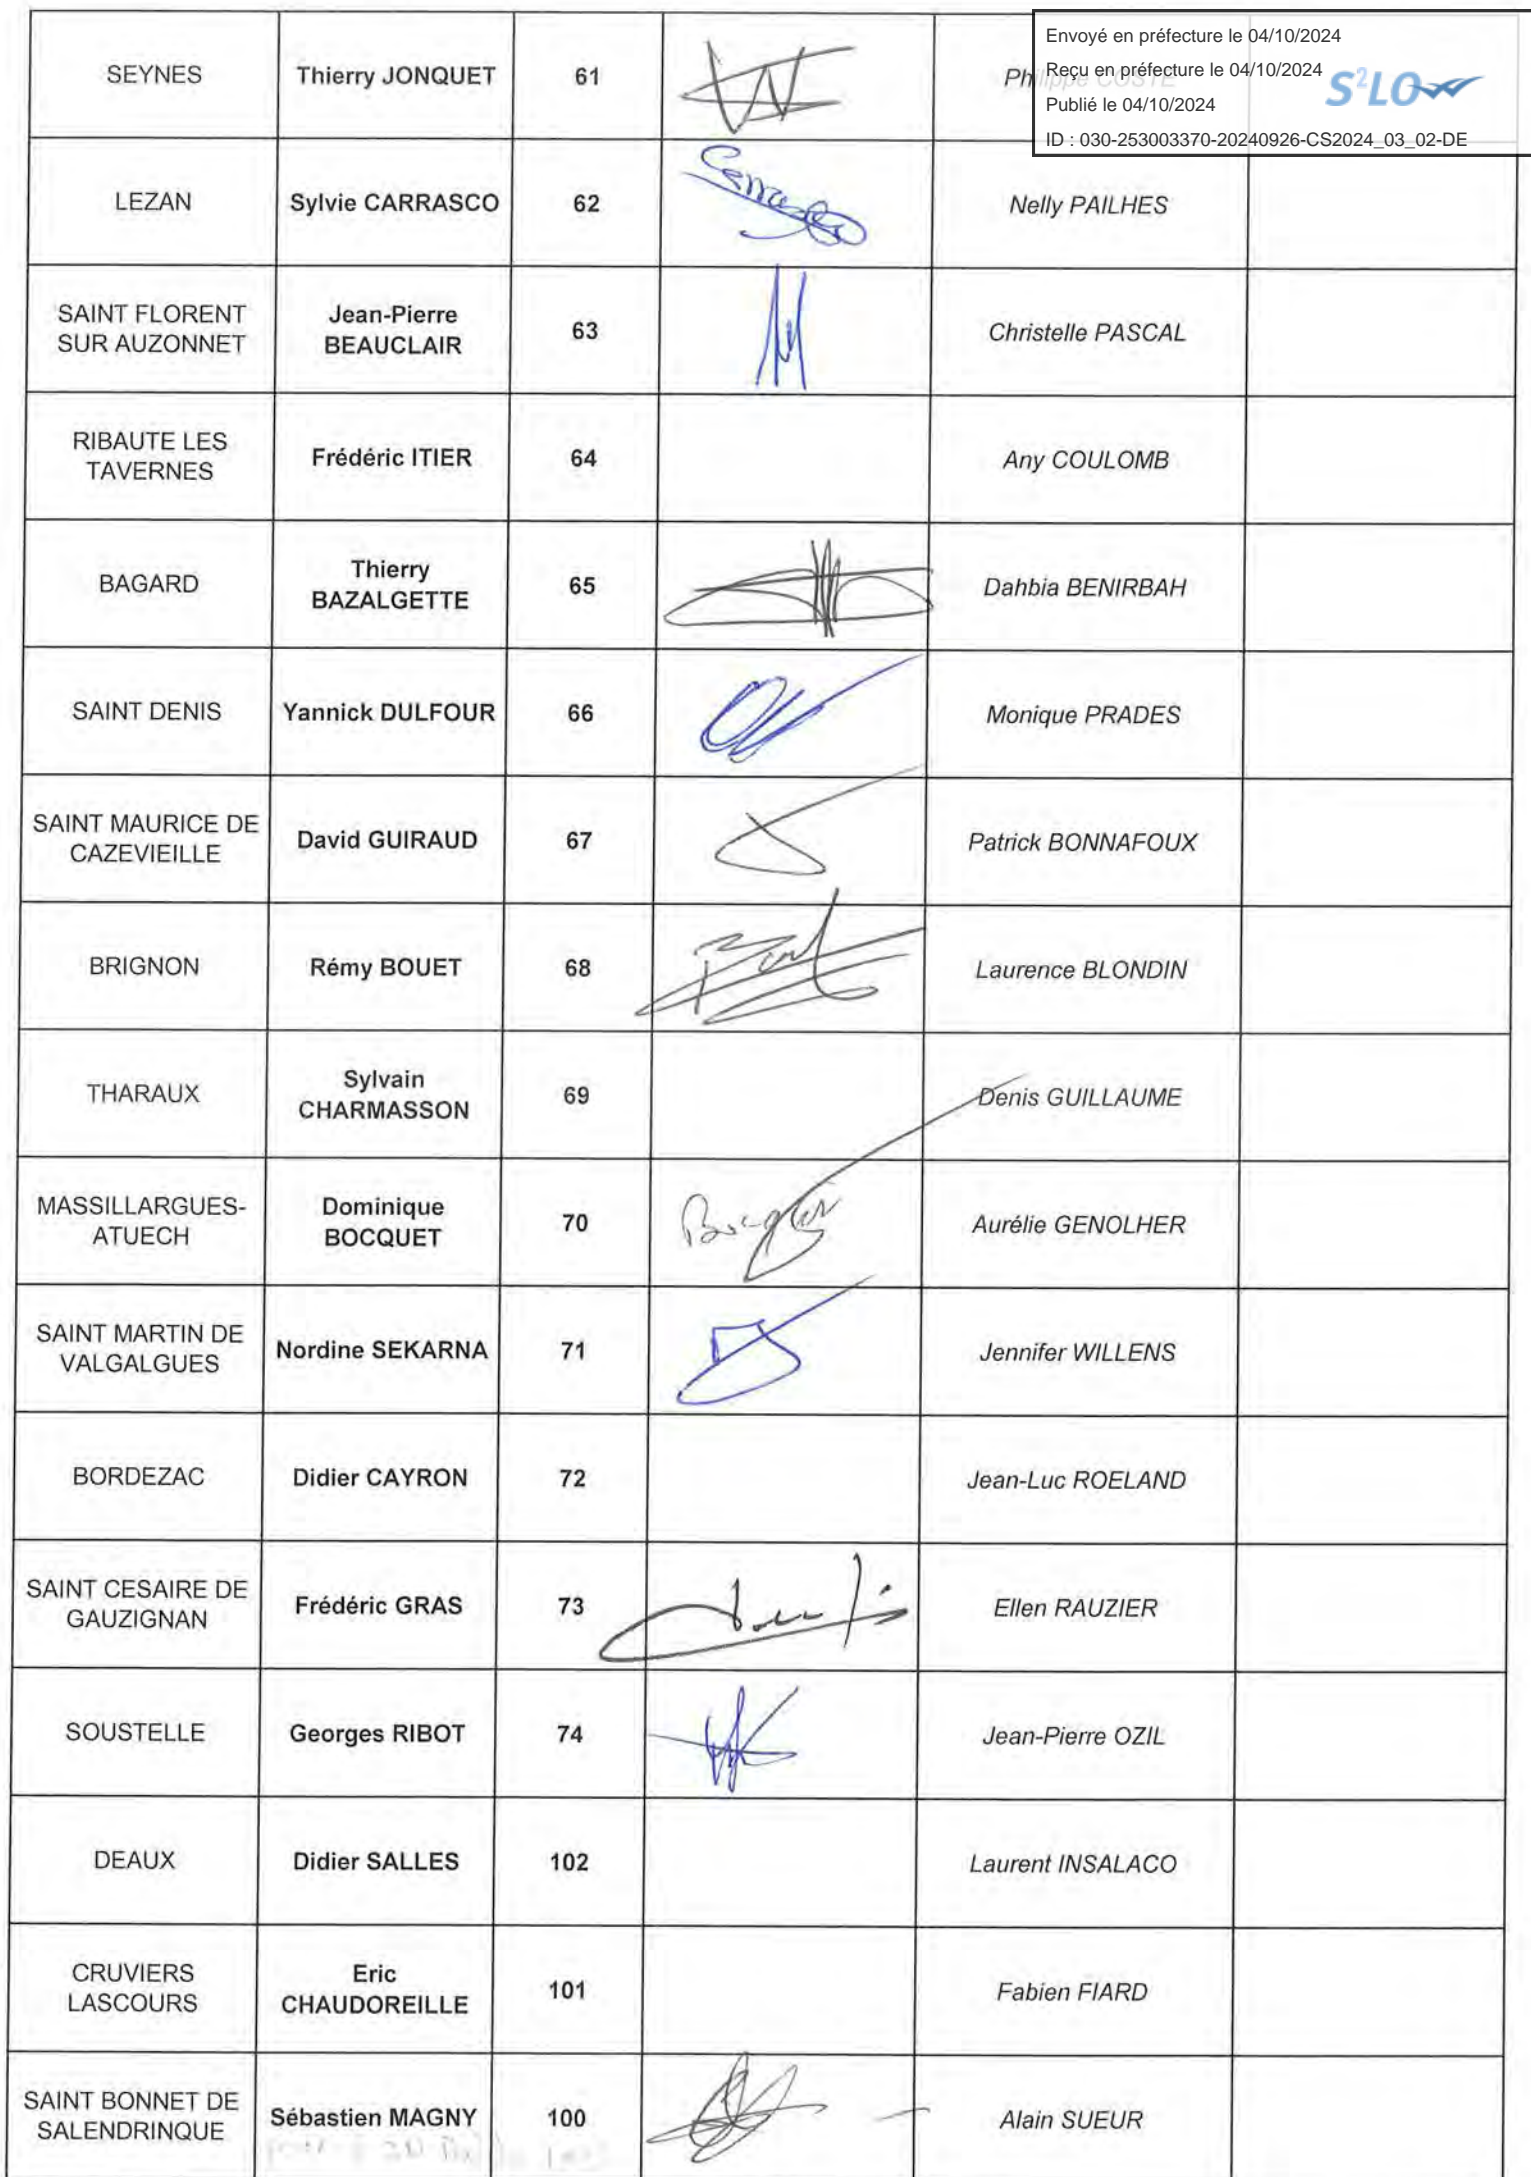 Envoyé en préfecture le 04/10/2024
Reçu en préfecture le 04/10/2024
Publié le 04/10/2024
S²LO
ID : 030-253003370-20240926-CS2024_03_02-DE
SEYNES Thierry JONQUET 61 Philippe COSTE
LEZAN Sylvie CARRASCO 62 Nelly PAILHES
SAINT FLORENT SUR AUZONNET Jean-Pierre BEAUCLAIR 63 Christelle PASCAL
RIBAUTE LES TAVERNES Frédéric ITIER 64 Any COULOMB
BAGARD Thierry BAZALGETTE 65 Dahbia BENIRBAH
SAINT DENIS Yannick DULFOUR 66 Monique PRADES
SAINT MAURICE DE CAZEVIEILLE David GUIRAUD 67 Patrick BONNAFOUX
BRIGNON Rémy BOUET 68 Laurence BLONDIN
THARAUX Sylvain CHARMASSON 69 Denis GUILLAUME
MASSILLARGUES-ATUECH Dominique BOCQUET 70 Aurélie GENOLHER
SAINT MARTIN DE VALGALGUES Nordine SEKARNA 71 Jennifer WILLENS
BORDEZAC Didier CAYRON 72 Jean-Luc ROELAND
SAINT CESAIRE DE GAUZIGNAN Frédéric GRAS 73 Ellen RAUZIER
SOUSTELLE Georges RIBOT 74 Jean-Pierre OZIL
DEAUX Didier SALLES 102 Laurent INSALACO
CRUVIERS LASCOURS Eric CHAUDOREILLE 101 Fabien FIARD
SAINT BONNET DE SALENDRINQUE Sébastien MAGNY 100 Alain SUEUR